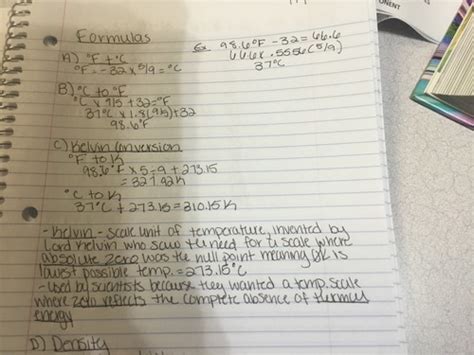 Formulas
Ex 98.6°F - 32 = 66.6
66.6 x .5556 (5/9)
37°C
A) °F to °C
°F - 32 x 5/9 = °C
B) °C to °F
°C x 9/5 + 32 = °F
37°C x 1.8 (9/5) + 32
98.6°F
C) Kelvin Conversion
°F to K
98.6°F x 5 ÷ 9 + 273.15
= 327.92K
°C to K
37°C + 273.15 = 310.15K
- Kelvin - scale unit of temperature, invented by
Lord Kelvin who saw the need for a scale where
absolute zero was the null point meaning 0K is
lowest possible temp. = 273.15°C
- used by scientists because they wanted a temp. scale
where zero reflects the complete absence of
energy
D) Density